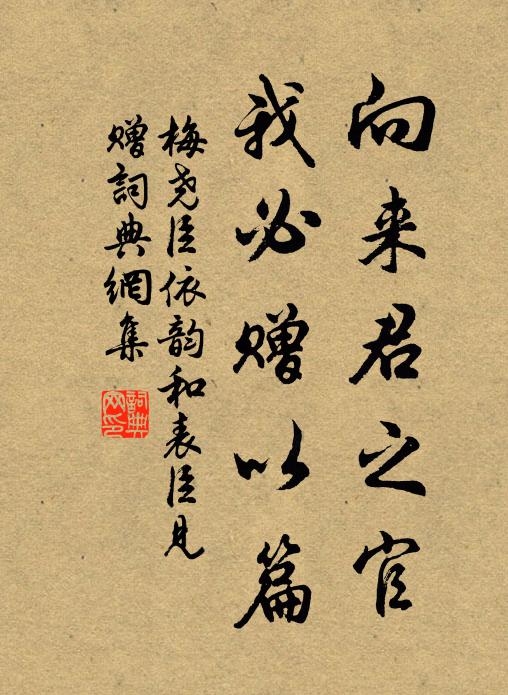 向来君之官
我必赠以篇
梅尧臣依韵和表臣见
赠詞典網集
詞典
网印